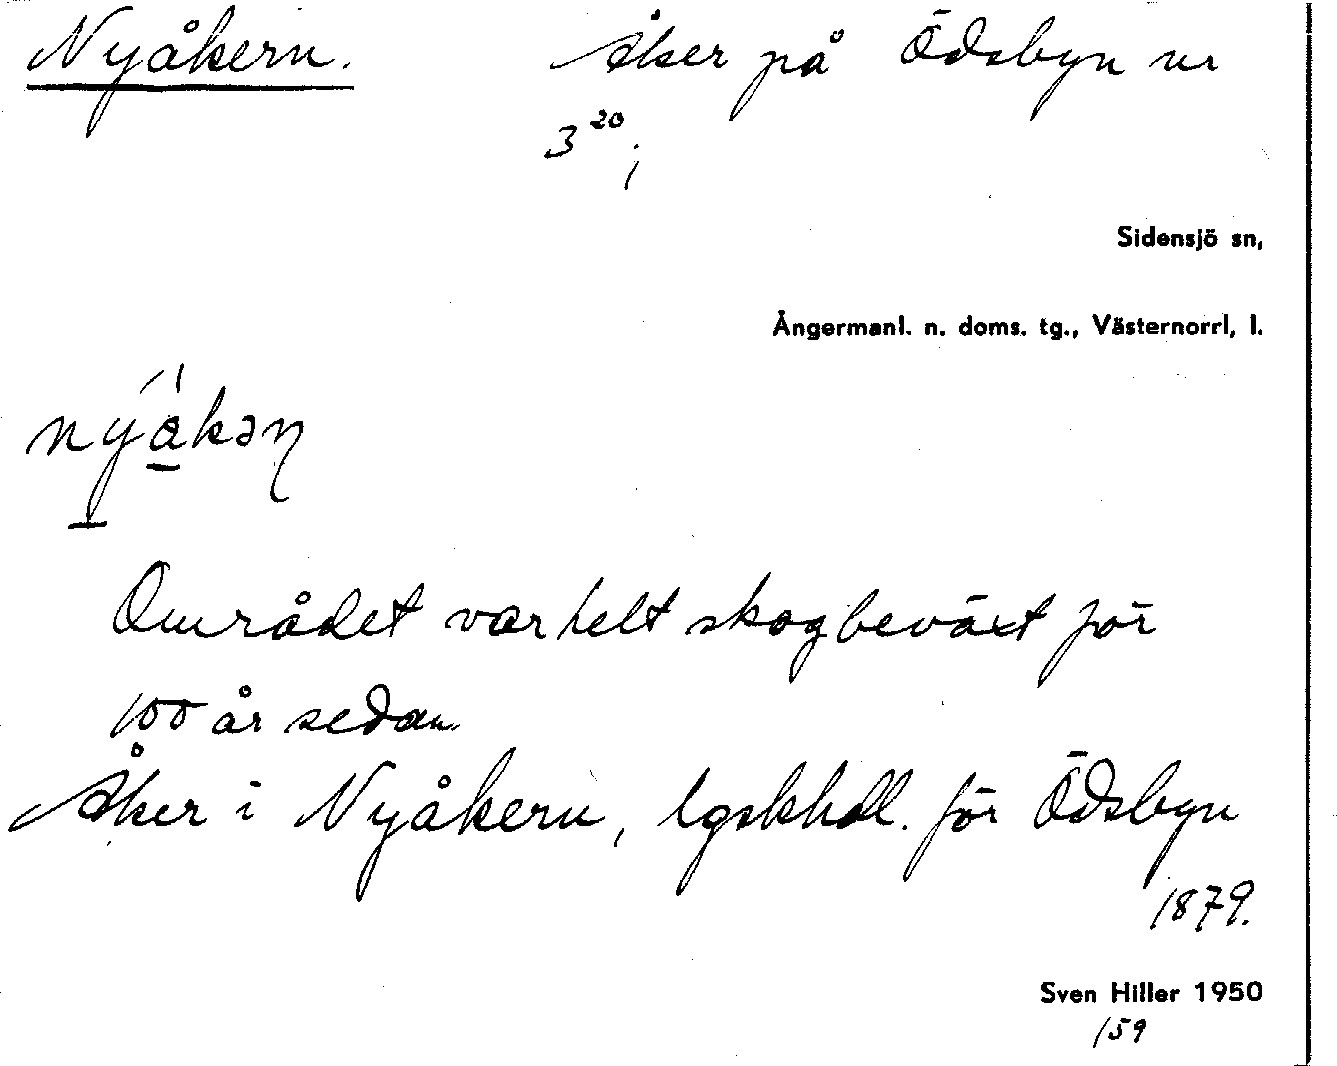 Nyåkern. Åker på Ödsbyn nr
3²⁰;
Sidensjö sn,
Ångermanl. n. doms. tg., Västernorrl, l.
Området var helt skogbeväxt för
100 år sedan.
Åker i Nyåkern, lgskhdl. för Ödsbyn
1879.
Sven Hiller 1950
159